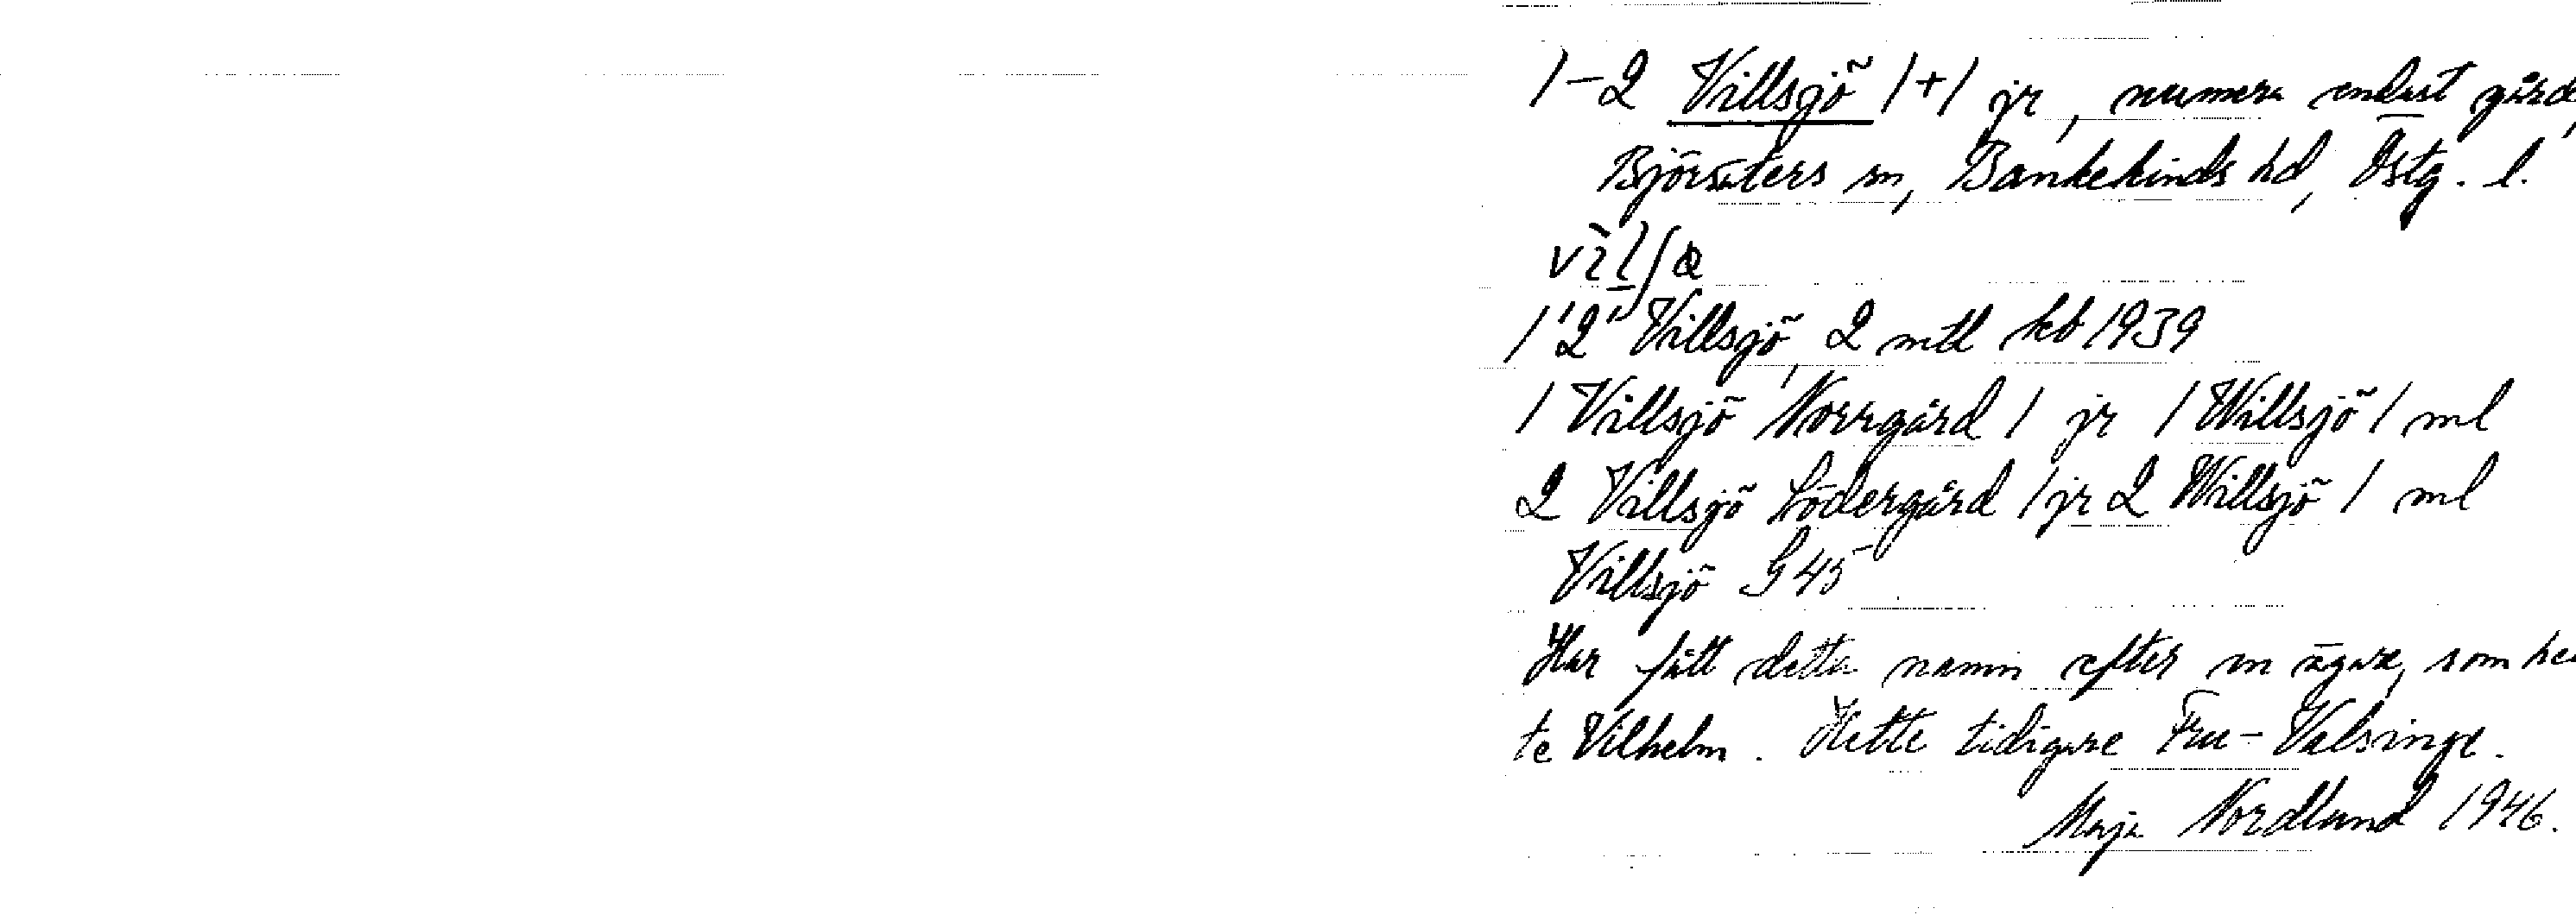 1-2 Villsjö 1+1 jr, numera endast gård,
Björsäters sn, Bankekinds hd, Östg. l.
1 2 Villsjö, 2 mtl kb 1939
1 Villsjö Norrgård 1 jr 1 Willsjö 1 ml
2 Villsjö Södergård 1 jr 2 Willsjö 1 ml
Villsjö G 45
Har fått detta namn efter en ägare, som het
te Vilhelm. Hette tidigare Fru-Valsinge.
Maja Nordlund 1946.